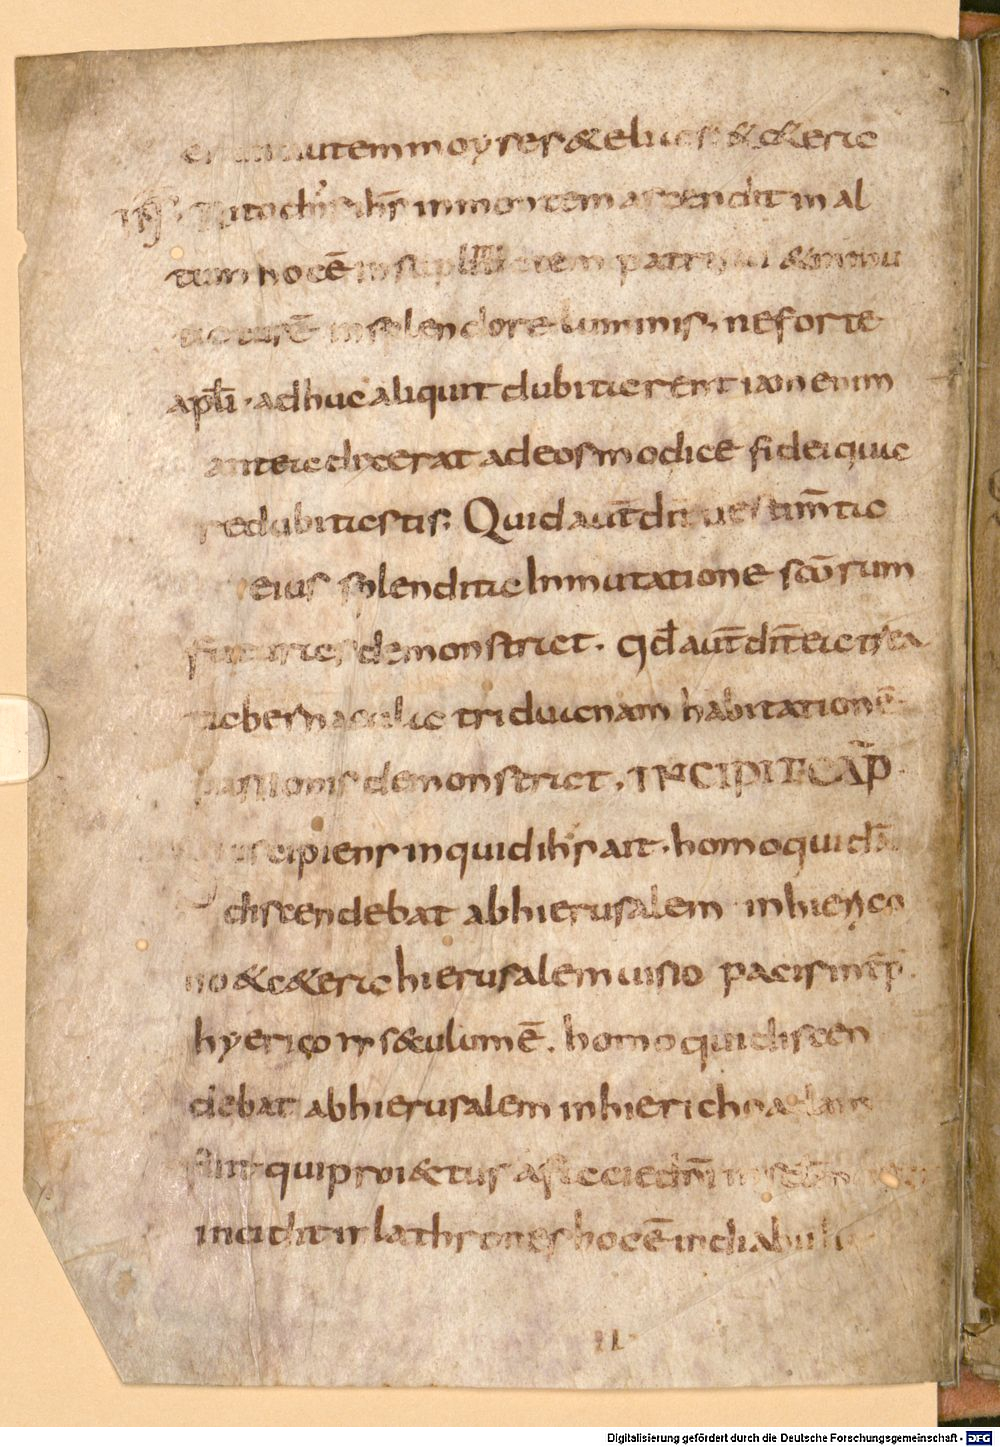 autem moyses & elias & c&era
ihs in montem ascendit in al
tum hoc ē patris
in splendore luminis, ne forte
apłi · adhuc aliquit dubitarent iam enim
antea dixerat ad eos modice fidei qua
re dubitastis; Quid aut̄ dn̄i uestim̄ta
eius splendida Inmutatione sc̄orum
demonstrat · qđ aut̄ dn̄t ea tria
tabernacula triduanam habitationē
passionis demonstrat, INCIPIT CAP̄
inquid ihs ait · homo quidā
discendebat ab hierusalem in hierico
no & c&era hierusalem uisio pacis int̄p̄ ·
hyerico sæculum ē. homo qui discen
debat ab hierusalem in hiericho
qui proi&ctus a facie dn̄i
incidit in lathrones hoc ē in diabuli
Digitalisierung gefördert durch die Deutsche Forschungsgemeinschaft - DFG